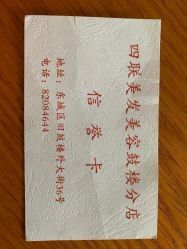 四联美发美容鼓楼分店
信誉卡
地址：东城区旧鼓楼外大街36号
电话：82084644